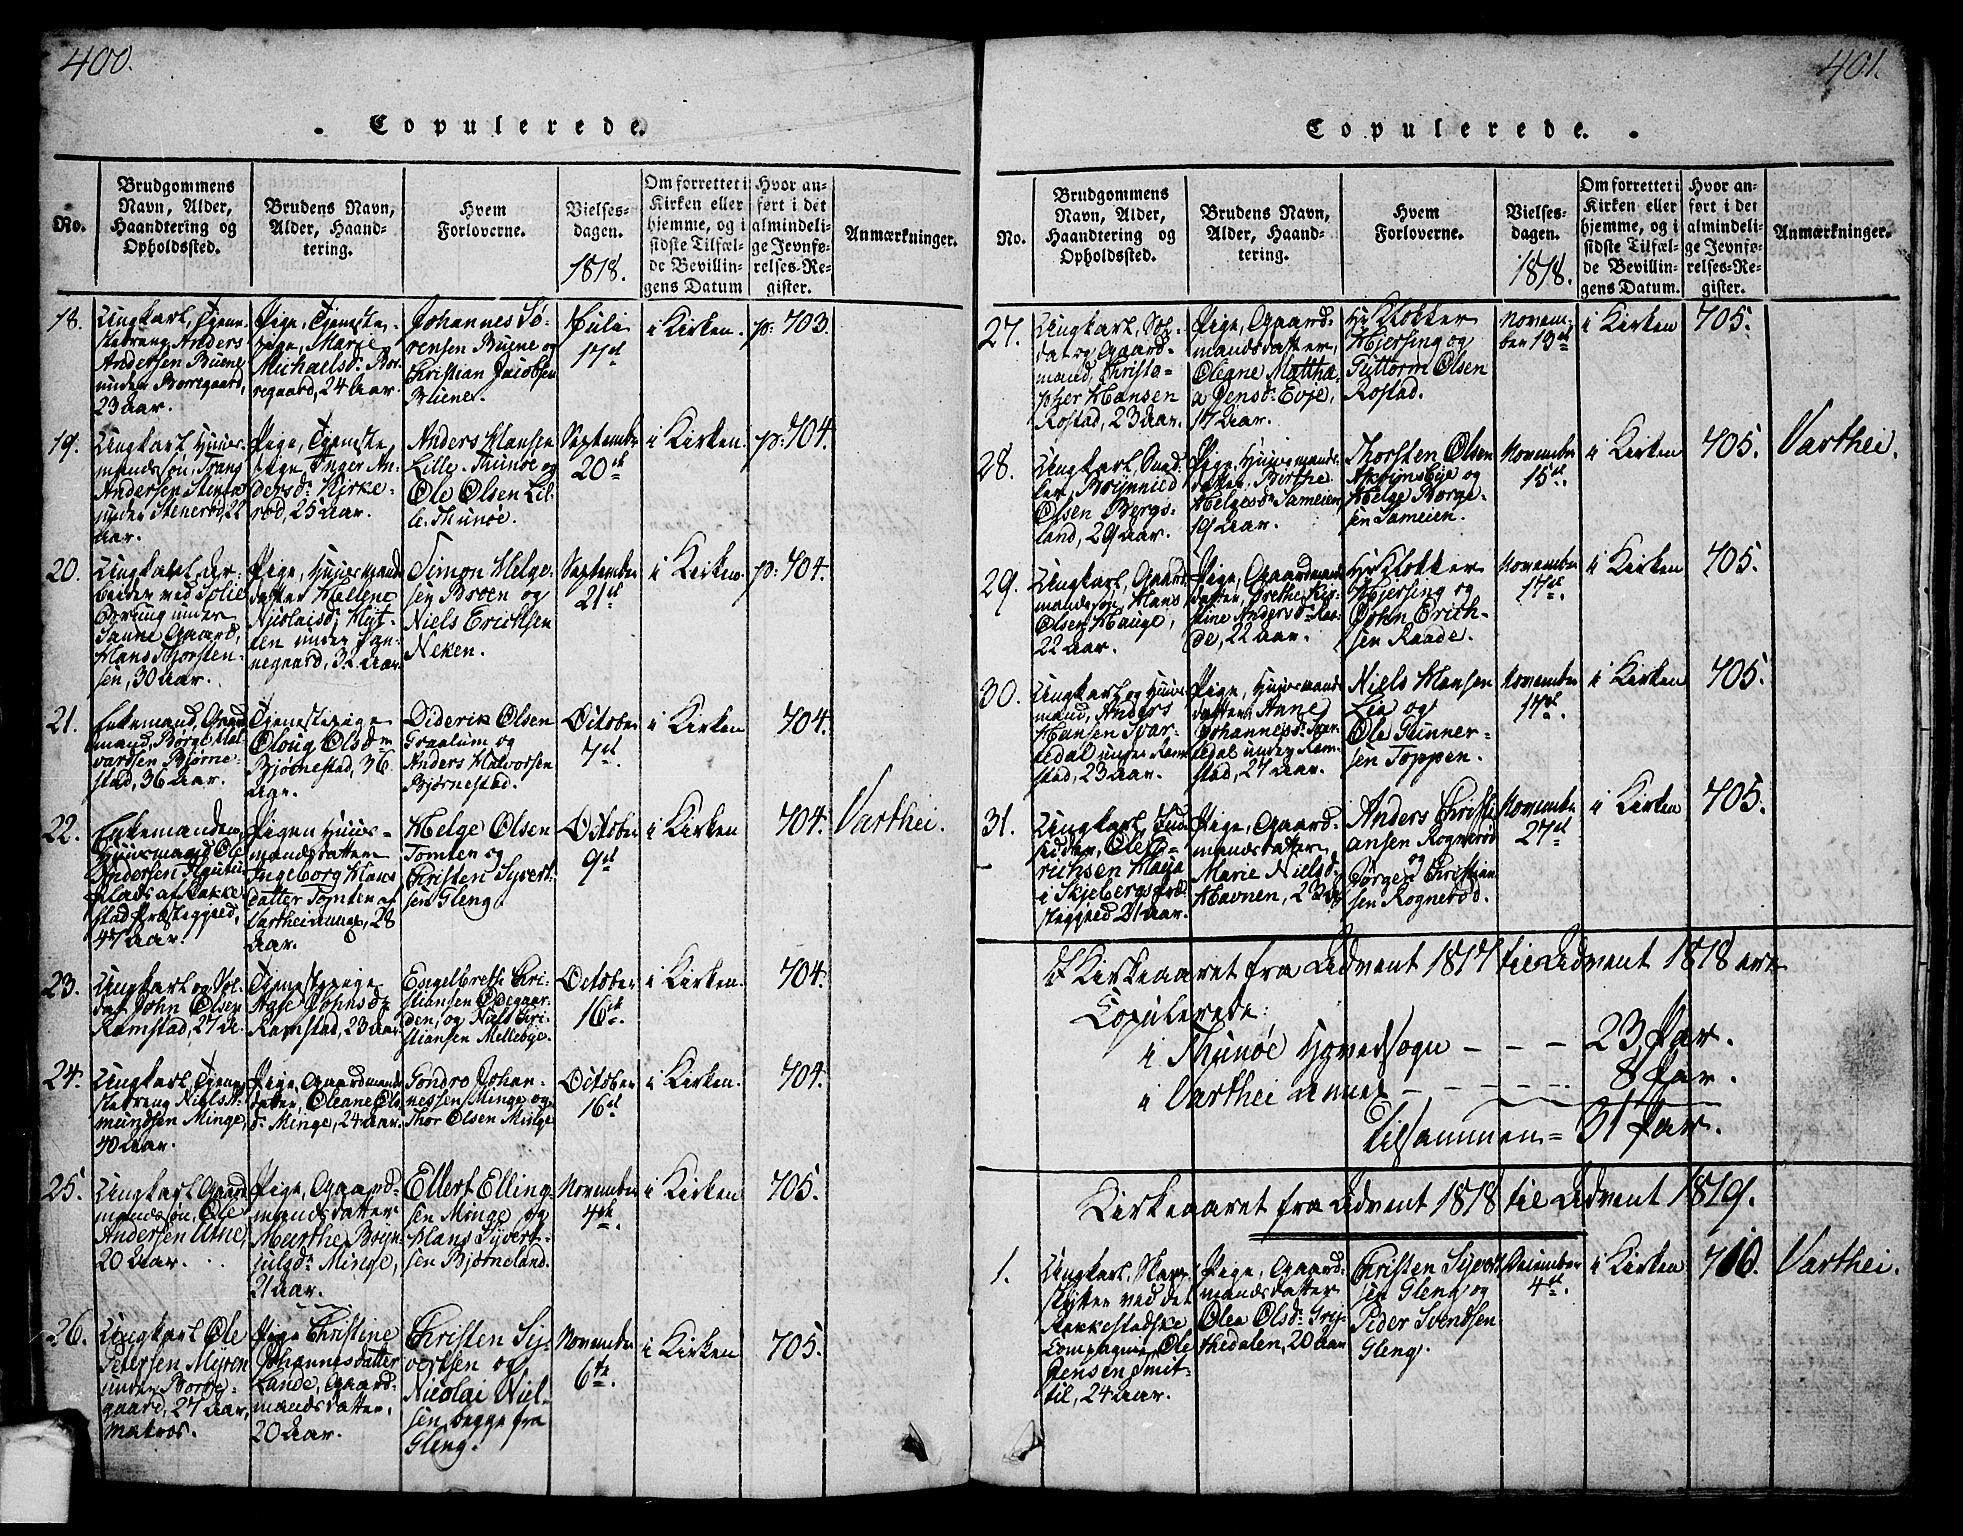 400.
Copulerede.
No.
Brudgommens
Navn, Alder,
Haandtering og
Opholdssted.
Brudens Navn,
Alder, Haand-
tering.
Hvem
Forloverne.
Vielses-
dagen.
1818.
Om forrettet i
Kirken eller
hjemme, og i
sidste Tilfæl-
de Bevillin-
gens Datum
Hvor an-
ført i det
almindeli-
ge Jevnfø-
relses-Re-
gister.
Anmærkninger.
18.
Ungkarl, Tjene-
stedreng Anders
Andersen Buene
under Borregaard,
23 Aar.
Pige, Tjeneste-
pige, Marie
Michaelsdr Bor-
regaard, 24 Aar.
Johannes Sø-
rensen Buene og
Christian Jacobsen
Buene.
Julii
17de
i Kirken.
p: 703.
19.
Ungkarl, Huus-
mandssøn, Frans
Andersen Stene
under Stenerød, 22
Aar.
Pige, Tjeneste
pige Inger An-
dersdr Kirke-
rød, 25 Aar.
Anders Hansen
Lille-Thunøe og
Ole Olsen Lil-
le-Thunøe.
Septembr
20de
i Kirken.
p: 704.
20.
Ungkarl, Ar-
beider ved
under
Sanne Gaard,
Hans Thorsten-
sen, 30 Aar.
Pige, Huusmands
datter Hellene
Nicolaisdr Hyt-
ten under San-
negaard, 32 Aar.
Simon Helge-
sen Broen og
Niels Erichsen
Neken.
September
21de
i Kirken.
p: 704.
21.
Enkemand, Gaard
mand, Børge Hal-
vardsen Bjørne-
stad, 36 Aar.
Tjenestepige
Oloug Olsdr
Bjørnestad, 36
Aar.
Diderik Olsen
Graalum og
Anders Halvorsen
Bjørnestad.
October
7de.
i Kirken
704.
22.
Enkemanden,
Huusmand Ole
Andersen
Plads af Rakke-
stad Præstegjeld,
47 Aar.
Pigen Huus-
mandsdatter
Ingeborg Hans
datter Tomten af
Varthei annex, 28
Aar.
Helge Olsen
Tomten og
Christen Syvert-
sen Gleng.
October
9de
i Kirken
704.
Varthei.
23.
Ungkarl og Sol-
dat John Olsen
Ramstad, 27 A.
Tjenestepige
Aase Johnsdr
Ramstad, 23 Aar
Engelbreth Chri-
stiansen Ødegaar-
den, og Niels Chri-
stiansen Mellebye.
October
16de.
i Kirken.
704.
24.
Ungkarl, Tjene-
stedreng Niels A-
mundsen Minge,
40 Aar.
Pige, Gaardmands
datter, Oleane Ols
dr Minge, 24 Aar.
Gondro Johan-
nessen Minge og
Thor Olsen Minge
October
16de
i Kirken.
704.
25.
Ungkarl, Gaard
mandssøn, Ole
Andersen Utne,
20 Aar.
Pige, Gaard-
mandsdatter
Marthe Brÿn-
julsdr Minge,
21 Aar.
Ellert Elling-
sen Minge og
Hans Sÿvert-
sen Bjørneland.
November
4de.
i Kirken
705.
26.
Ungkarl Ole
Petersen Mÿren
under Borre-
gaard, 27 Aar,
Matros.
Pige Christine
Johannesdatter
Lande, Gaard-
mandsdatter,
20 Aar.
Christen Sÿ-
vertsen og
Nicolai Niel-
sen begge fra
Gleng.
Novembr
6te
i Kirken
705.
401.
Copulerede.
No.
Brudgommens
Navn, Alder,
Haandtering og
Opholdssted.
Brudens Navn,
Alder, Haand-
tering.
Hvem
Forloverne.
Vielses-
dagen.
1818.
Om forrettet i
Kirken eller
hjemme, og i
sidste Tilfæl-
de Bevillin-
gens Datum.
Hvor an-
ført i det
almindeli-
ge Jevnfø-
relses-Re-
gister.
Anmærkninger.
27.
Ungkarl, Sol-
dat og Gaard-
mand, Christo-
pher Hansen
Rostad, 23 Aar.
Pige, Gaard-
mandsdatter,
Oleane Mattha-
a Jensdr Evje,
17 Aar.
Hr Klokker
Hjersing og
Guttorm Olsen
Rostad.
Novem-
ber 13de
i Kirken
705.
28.
Ungkarl,
Brÿnnild
Olsen Bergs-
land, 29 Aar.
Pige, Huusmands
datter Birthe
Helgesdr Sameien,
19 Aar.
Thorsten Olsen
og
Helge Borge-
sen Sameien.
November
15de.
i Kirken
705.
Varthei.
29.
Ungkarl, Gaard
mandssøn Hans
Olsen Hauge,
22 Aar.
Pige, Gaardmands
datter, Grethe Kir-
stine Andersdr Raa-
de, 22 Aar.
Hr Klokker
Hjersing og
John Erich-
sen Raade.
November
17de.
i Kirken
705.
30.
Ungkarl og Huus-
mand, Anders
Hansen Svar-
tedal under Ram
stad, 23 Aar.
Pige, Huusmands
datter Anne
Johannesdr Svar-
tedal under Ram-
stad, 27 Aar.
Niels Hansen
Lie og
Ole Gunner-
sen Toppen.
November
17de.
i Kirken
705.
31.
Ungkarl, Ind-
sidder, Ole E-
richsen Hauge
i Skjebergs Præ-
stegjeld 21 Aar.
Pige, Gaard-
mandsdatter
Marie Nielsdr
Havnen, 2
Anders Christi
ansen Rognerød
og
Jørgen Christian
sen Rognerød.
November
27de
i Kirken
705.
I Kirkeaaret fra Advent 1817 til Advent 1818 ere
Copulerede:
i Thunøe Hovedsogn - - - 23 Par.
i Varthei annex - - - - - 8 Par.
Tilsammen = 31 Par.
Kirkeaaret fra Advent 1818 til Advent 1819.
1.
Ungkarl, Skarp-
skytter ved det
Rakkestadske
Compagnie, Ole
Jensen Smit-
til, 24 Aar.
Pige, Gaard-
mandsdatter
Olea Olsdr Grÿ-
thedalen, 20 Aar
Christen Sÿvert
sen Gleng og
Peder Svendsen
Gleng.
December
4de.
i Kirken
710.
Varthei.